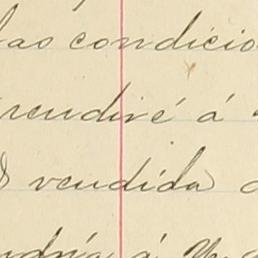 las condicio
rendiré á
vendida
á